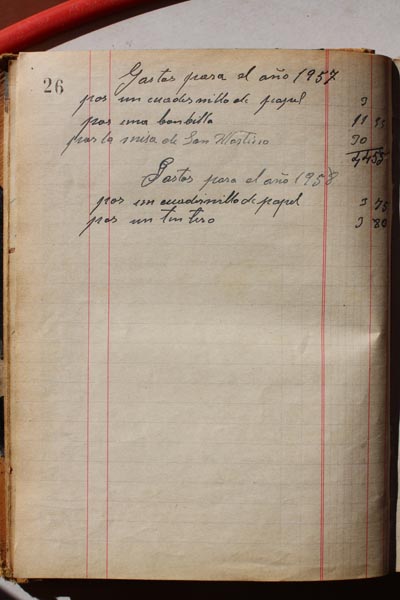 26
Gastos para el año 1957
por un cuadernillo de papel 3
por una bonbilla 11 55
por la misa de San Martino 30
44 55
Gastos para el año 1958
por un cuadernillo de papel 3 75
por un tintero 3 80